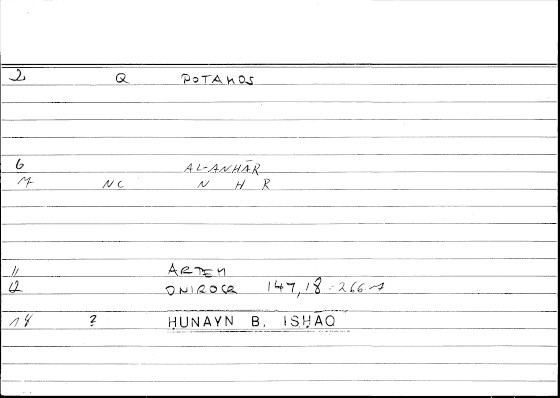 2 Q POTAMOS
6 AL-ANHĀR
7 NC N H R
11 ARTEM
12 ONIROCR 147,18-266.7
14 ? HUNAYN B. ISḤĀQ